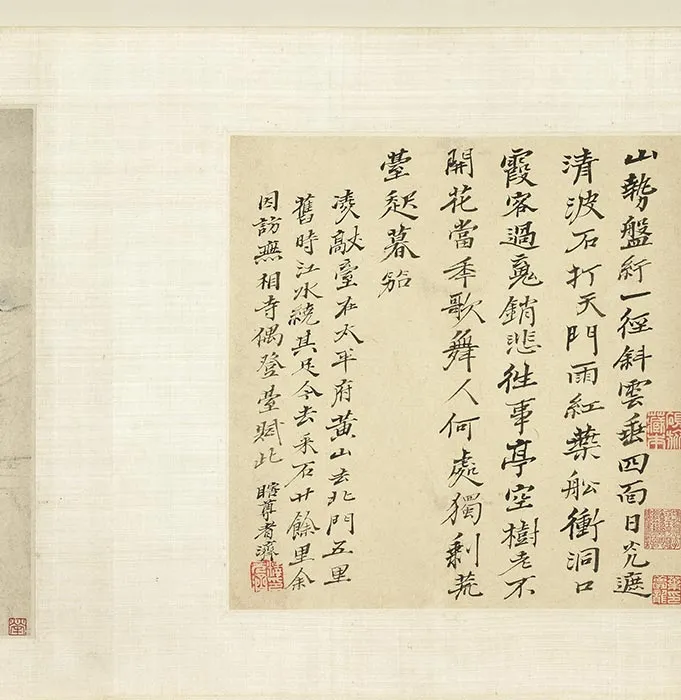 山勢盤紆一徑斜雲垂四面日光遮
清波石打天門雨紅葉舩衝洞口
霞客過魂銷悲往事亭空樹老不
開花當年歌舞人何處獨剩荒
臺起暮笳
凌歊臺在太平府黃山去北門五里
舊時江水繞其足今去采石廿餘里余
因訪無相寺偶登臺賦此 瞎尊者濟